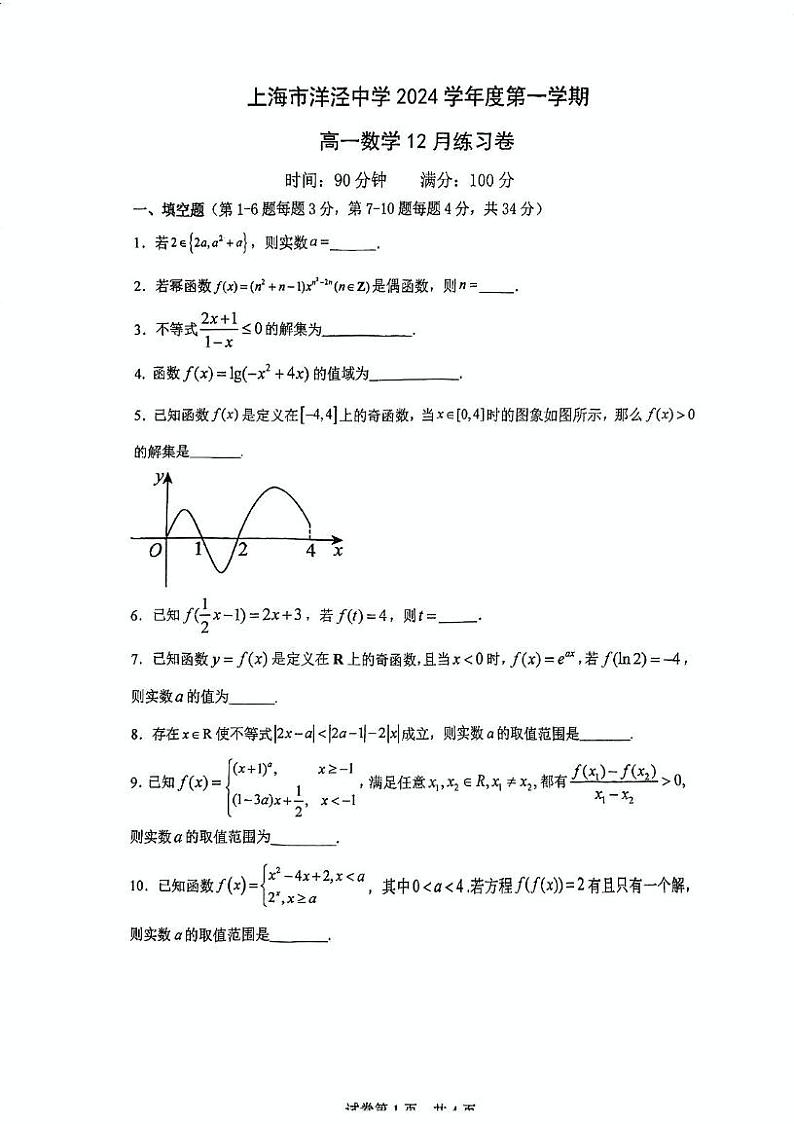 上海市洋泾中学 2024 学年度第一学期
高一数学 12 月练习卷
时间：90 分钟 满分：100 分
一、填空题（第 1-6 题每题 3 分，第 7-10 题每题 4 分，共 34 分）
1. 若 2∈{2a, a²+a}，则实数 a=______.
2. 若幂函数 f(x)=(n²+n−1)x^(n²−2n) (n∈Z) 是偶函数，则 n=_____.
3. 不等式 (2x+1)/(1−x) ≤ 0 的解集为_____________.
4. 函数 f(x)=lg(−x²+4x) 的值域为_____________.
5. 已知函数 f(x) 是定义在 [−4,4] 上的奇函数，当 x∈[0,4] 时的图象如图所示，那么 f(x)>0
的解集是_______.
y
O 1 2 4 x
6. 已知 f(1/2 x−1)=2x+3，若 f(t)=4，则 t=_____.
7. 已知函数 y=f(x) 是定义在 R 上的奇函数，且当 x<0 时，f(x)=e^(ax)，若 f(ln2)=−4，
则实数 a 的值为______.
8. 存在 x∈R 使不等式 |2x−a|<|2a−1|−2|x| 成立，则实数 a 的取值范围是_______.
9. 已知 f(x)={(x+1)^a, x≥−1; (1−3a)x+1/2, x<−1，满足任意 x₁,x₂∈R, x₁≠x₂, 都有 (f(x₁)−f(x₂))/(x₁−x₂)>0,
则实数 a 的取值范围为_________.
10. 已知函数 f(x)={x²−4x+2, x<a; 2^x, x≥a，其中 0<a<4.若方程 f(f(x))=2 有且只有一个解，
则实数 a 的取值范围是________.